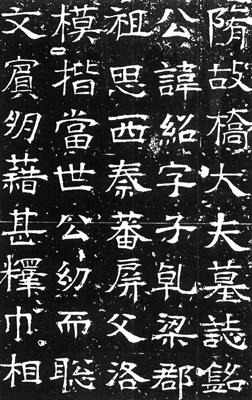 隋故橋大夫墓誌
公諱紹字子乹梁郡
祖思西秦蕃屏父洛
模揩當世公幼而聡
文賓朙藉甚釋巾相